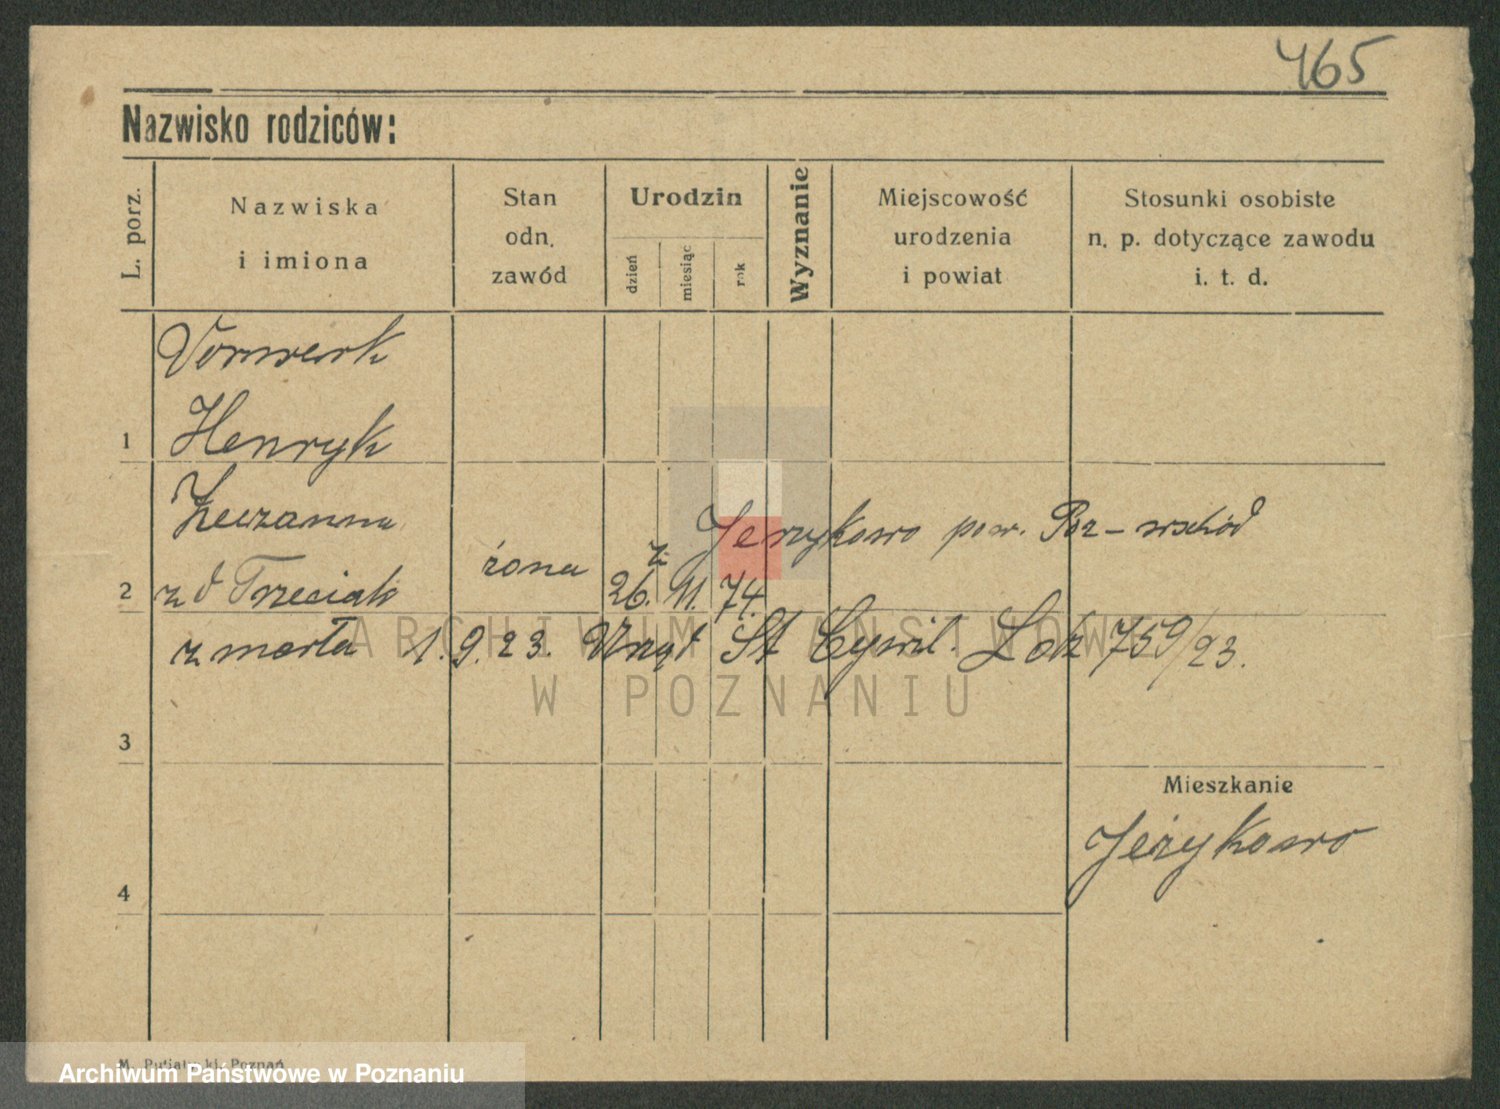 465
Nazwisko rodziców:
L. porz.
Nazwiska
i imiona
Stan
odn.
zawód
Urodzin
dzień
miesiąc
rok
Wyznanie
Miejscowość
urodzenia
i powiat
Stosunki osobiste
n. p. dotyczące zawodu
i. t. d.
Vorwerk
1 Henryk
Zuzanna
z Jerzykowo pow. Poz-wschód
2 z d Trzeciak żona 26. 11. 74.
zmarła 1.9.23. Urząd St Cywil. 759/23.
ARCHIWUM PAŃSTWOWE
W POZNANIU
3
Mieszkanie
Jerzykowo
4
Poznań
Archiwum Państwowe w Poznaniu